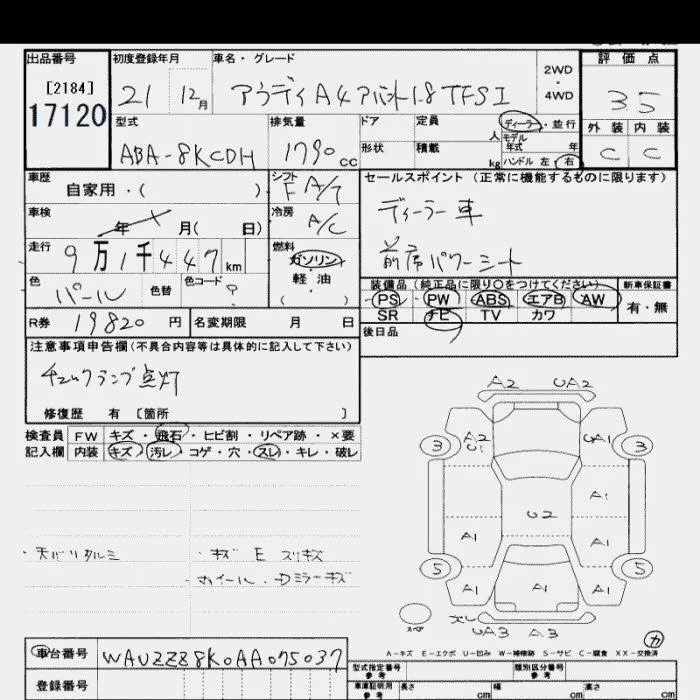 出品番号 初度登録年月 車名・グレード 評価点
[2184]
17120
21 12月 アウディA4アバント1.8TFSI
2WD
4WD
3.5
型式 排気量 ドア 定員 人 ディーラー・並行
モデル年式 年
ABA-8KCDH 1790cc 形状 積載 kg ハンドル 左・右
外装 内装
C C
車歴 自家用・( )
シフト F A/T
セールスポイント(正常に機能するものに限ります)
ディーラー車
前席パワーシート
車検 年 月( 日)
冷房 A/C
走行 9万1千447km
燃料 ガソリン
軽・油
( )
色 パール 色替 色コード ?
装備品(純正品に限り○をつけてください) 新車保証書
PS PW ABS エアB AW 有・無
SR ナビ TV カワ
R券 19820円 名変期限 月 日
後日品
注意事項申告欄(不具合内容等は具体的に記入して下さい)
チェックランプ点灯
修復歴 有 [箇所 ]
検査員 FW キズ・飛石・ヒビ割・リペア跡・×要
記入欄 内装 キズ・汚レ・コゲ・穴・スレ・キレ・破レ
・天バリタルミ ・キズ E スリキズ
・ホイール・Dミラーキズ
A2 UA2
3 A2 U1 UA1 3
A1
U2
A1 A1
5 5
A1 A1 A1
スペ スレ UA3 A3
カ
A-キズ E-エクボ U-凹み W-補修跡 S-サビ C-腐食 XX-交換済
車台番号 WAUZZZ8K0AA075037
登録番号
型式指定番号 参考 類別区分番号 参考
車庫証明用 参考 長さ cm 幅 cm 高さ cm